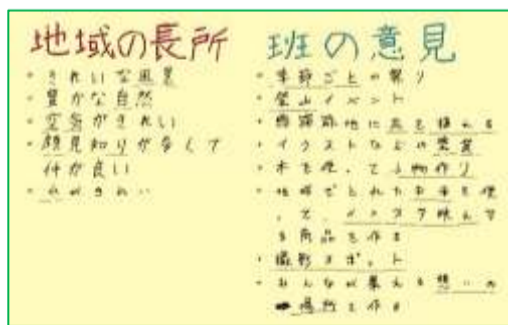 地域の長所
・きれいな風景
・豊かな自然
・空気がきれい
・顔見知りが多くて
仲が良い
・がきれい
班の意見
・季節ごとの祭り
・登山イベント
・跡地にを植える
・イラストなどの
・木を使って物作り
・地域でとれたを使
って、インスタ映えす
る商品を作る
・撮影スポット
・みんなが集える憩いの
場所を作る